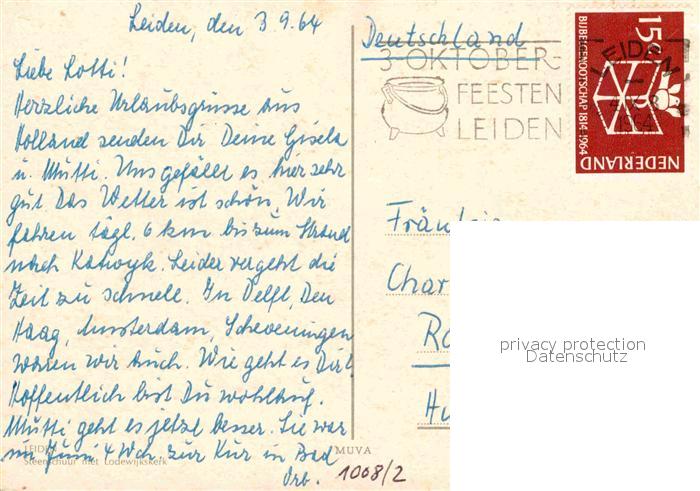 Leiden, den 3.9.64
Liebe Lotti!
Herzliche Urlaubsgrüsse aus
Holland senden Dir Deine Gisela
u. Mutti. Uns gefällt es hier sehr
gut Das Wetter ist schön, Wir
fahren tägl. 6 km bis zum Strand
nach Katwyk. Leider vergeht die
Zeit zu schnell. In Delft, Den
Haag, Amsterdam, Scheveningen
waren wir auch. Wie geht es Dir?
Hoffentlich bist Du wohlauf.
Mutti geht es jetzt besser. Sie war
im Juni 4 Wch. zur Kur in Bad
Orb.
LEIDEN
Steenschuur met Lodewijkskerk
MUVA
1008/2
Deutschland
3 OKTOBER-
FEESTEN
LEIDEN
LEIDEN
1964
15c
BIJBELGENOOTSCHAP 1814-1964
NEDERLAND
Fräulein
Char
Ro
Hu
privacy protection
Datenschutz